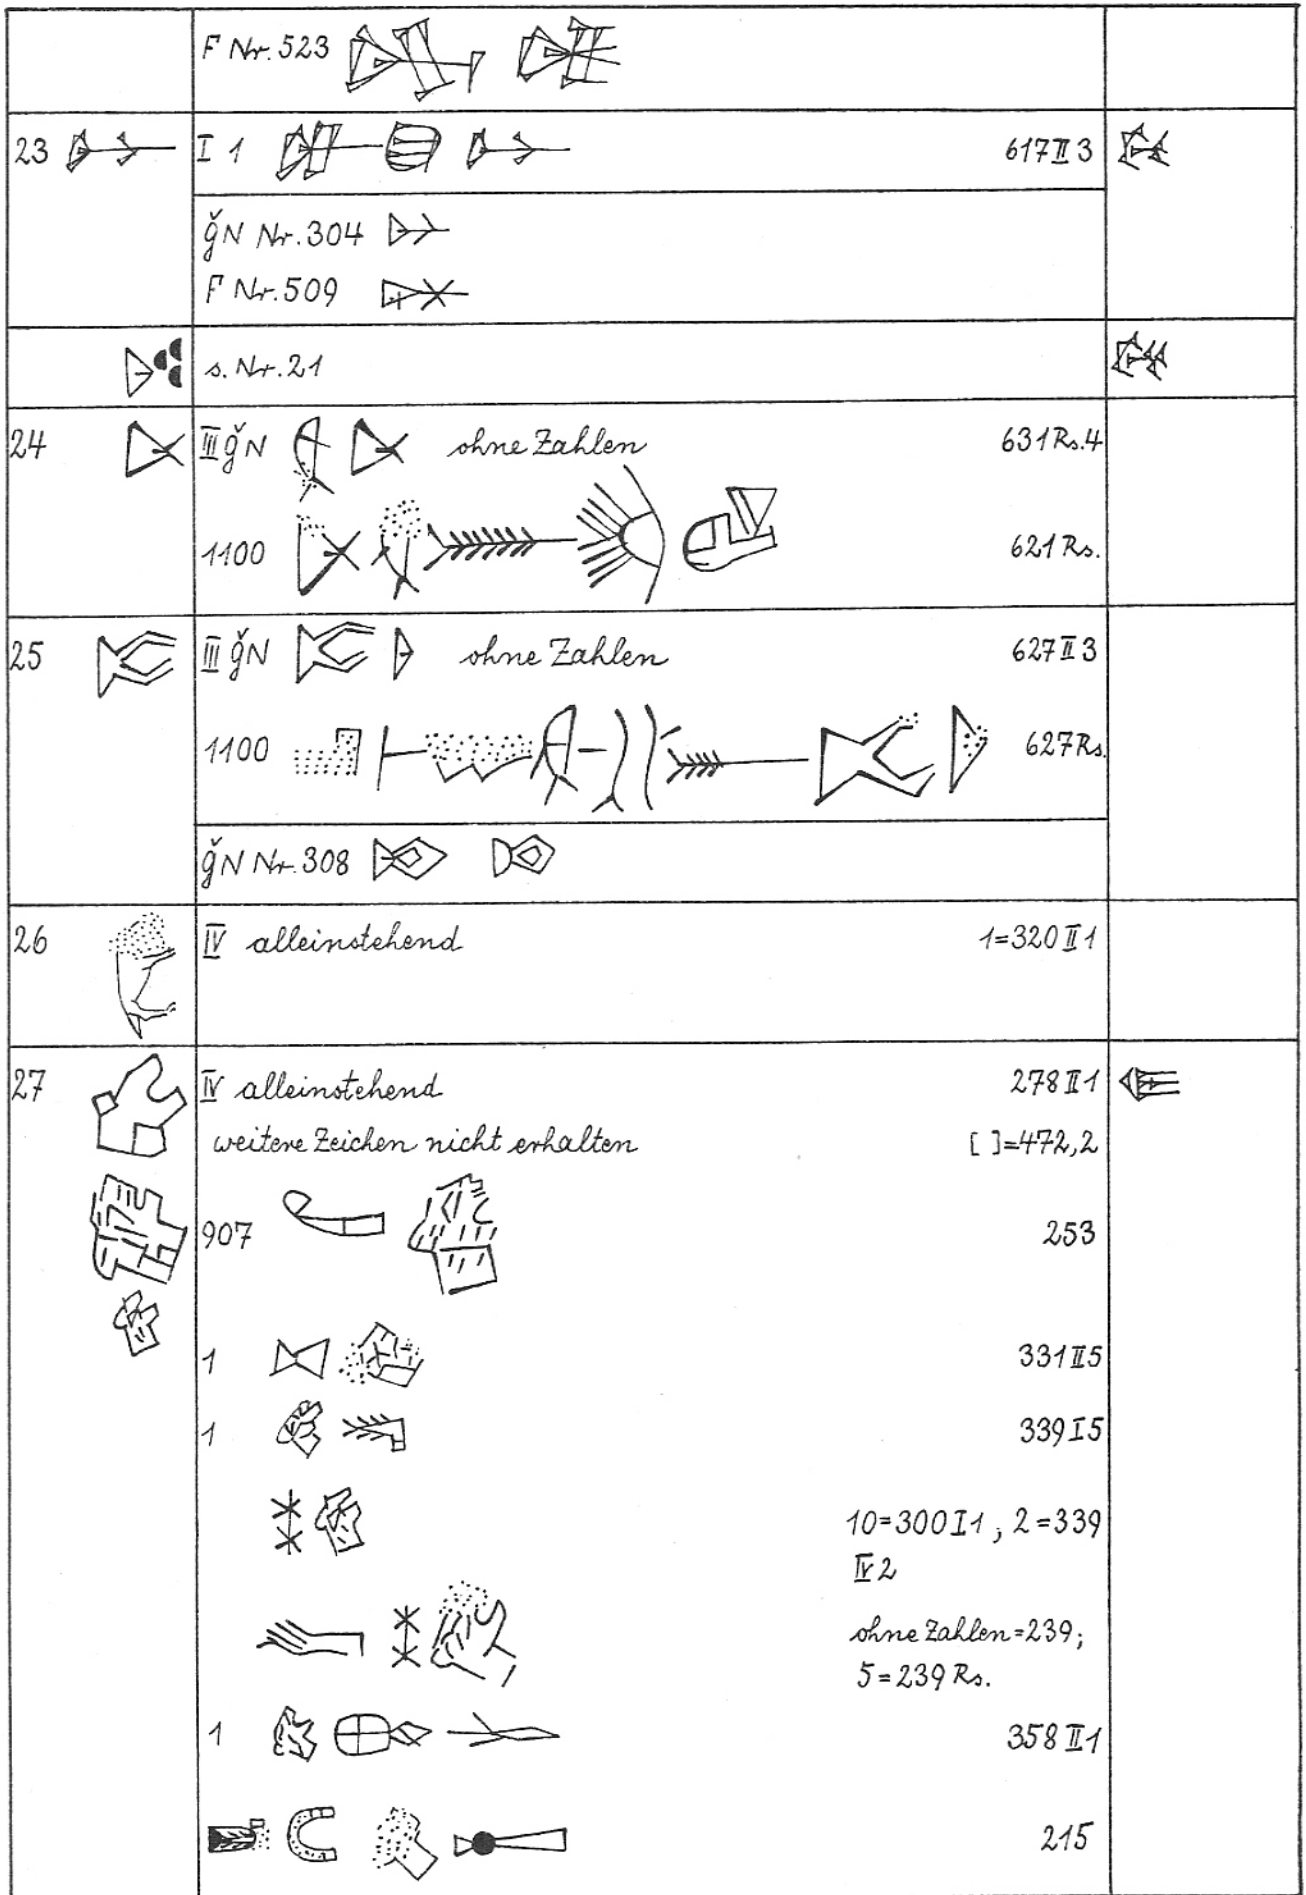 F Nr. 523
23 I 1 617 II 3
ǧN Nr. 304
F Nr. 509
s. Nr. 21
24 III ǧN ohne Zahlen 631 Rs. 4
1100 621 Rs.
25 III ǧN ohne Zahlen 627 II 3
1100 627 Rs.
ǧN Nr. 308
26 IV alleinstehend 1=320 II 1
27 IV alleinstehend 278 II 1
weitere Zeichen nicht erhalten [ ]=472,2
907 253
1 331 II 5
1 339 I 5
10=300 I 1 ; 2=339
IV 2
ohne Zahlen=239;
5=239 Rs.
1 358 II 1
215